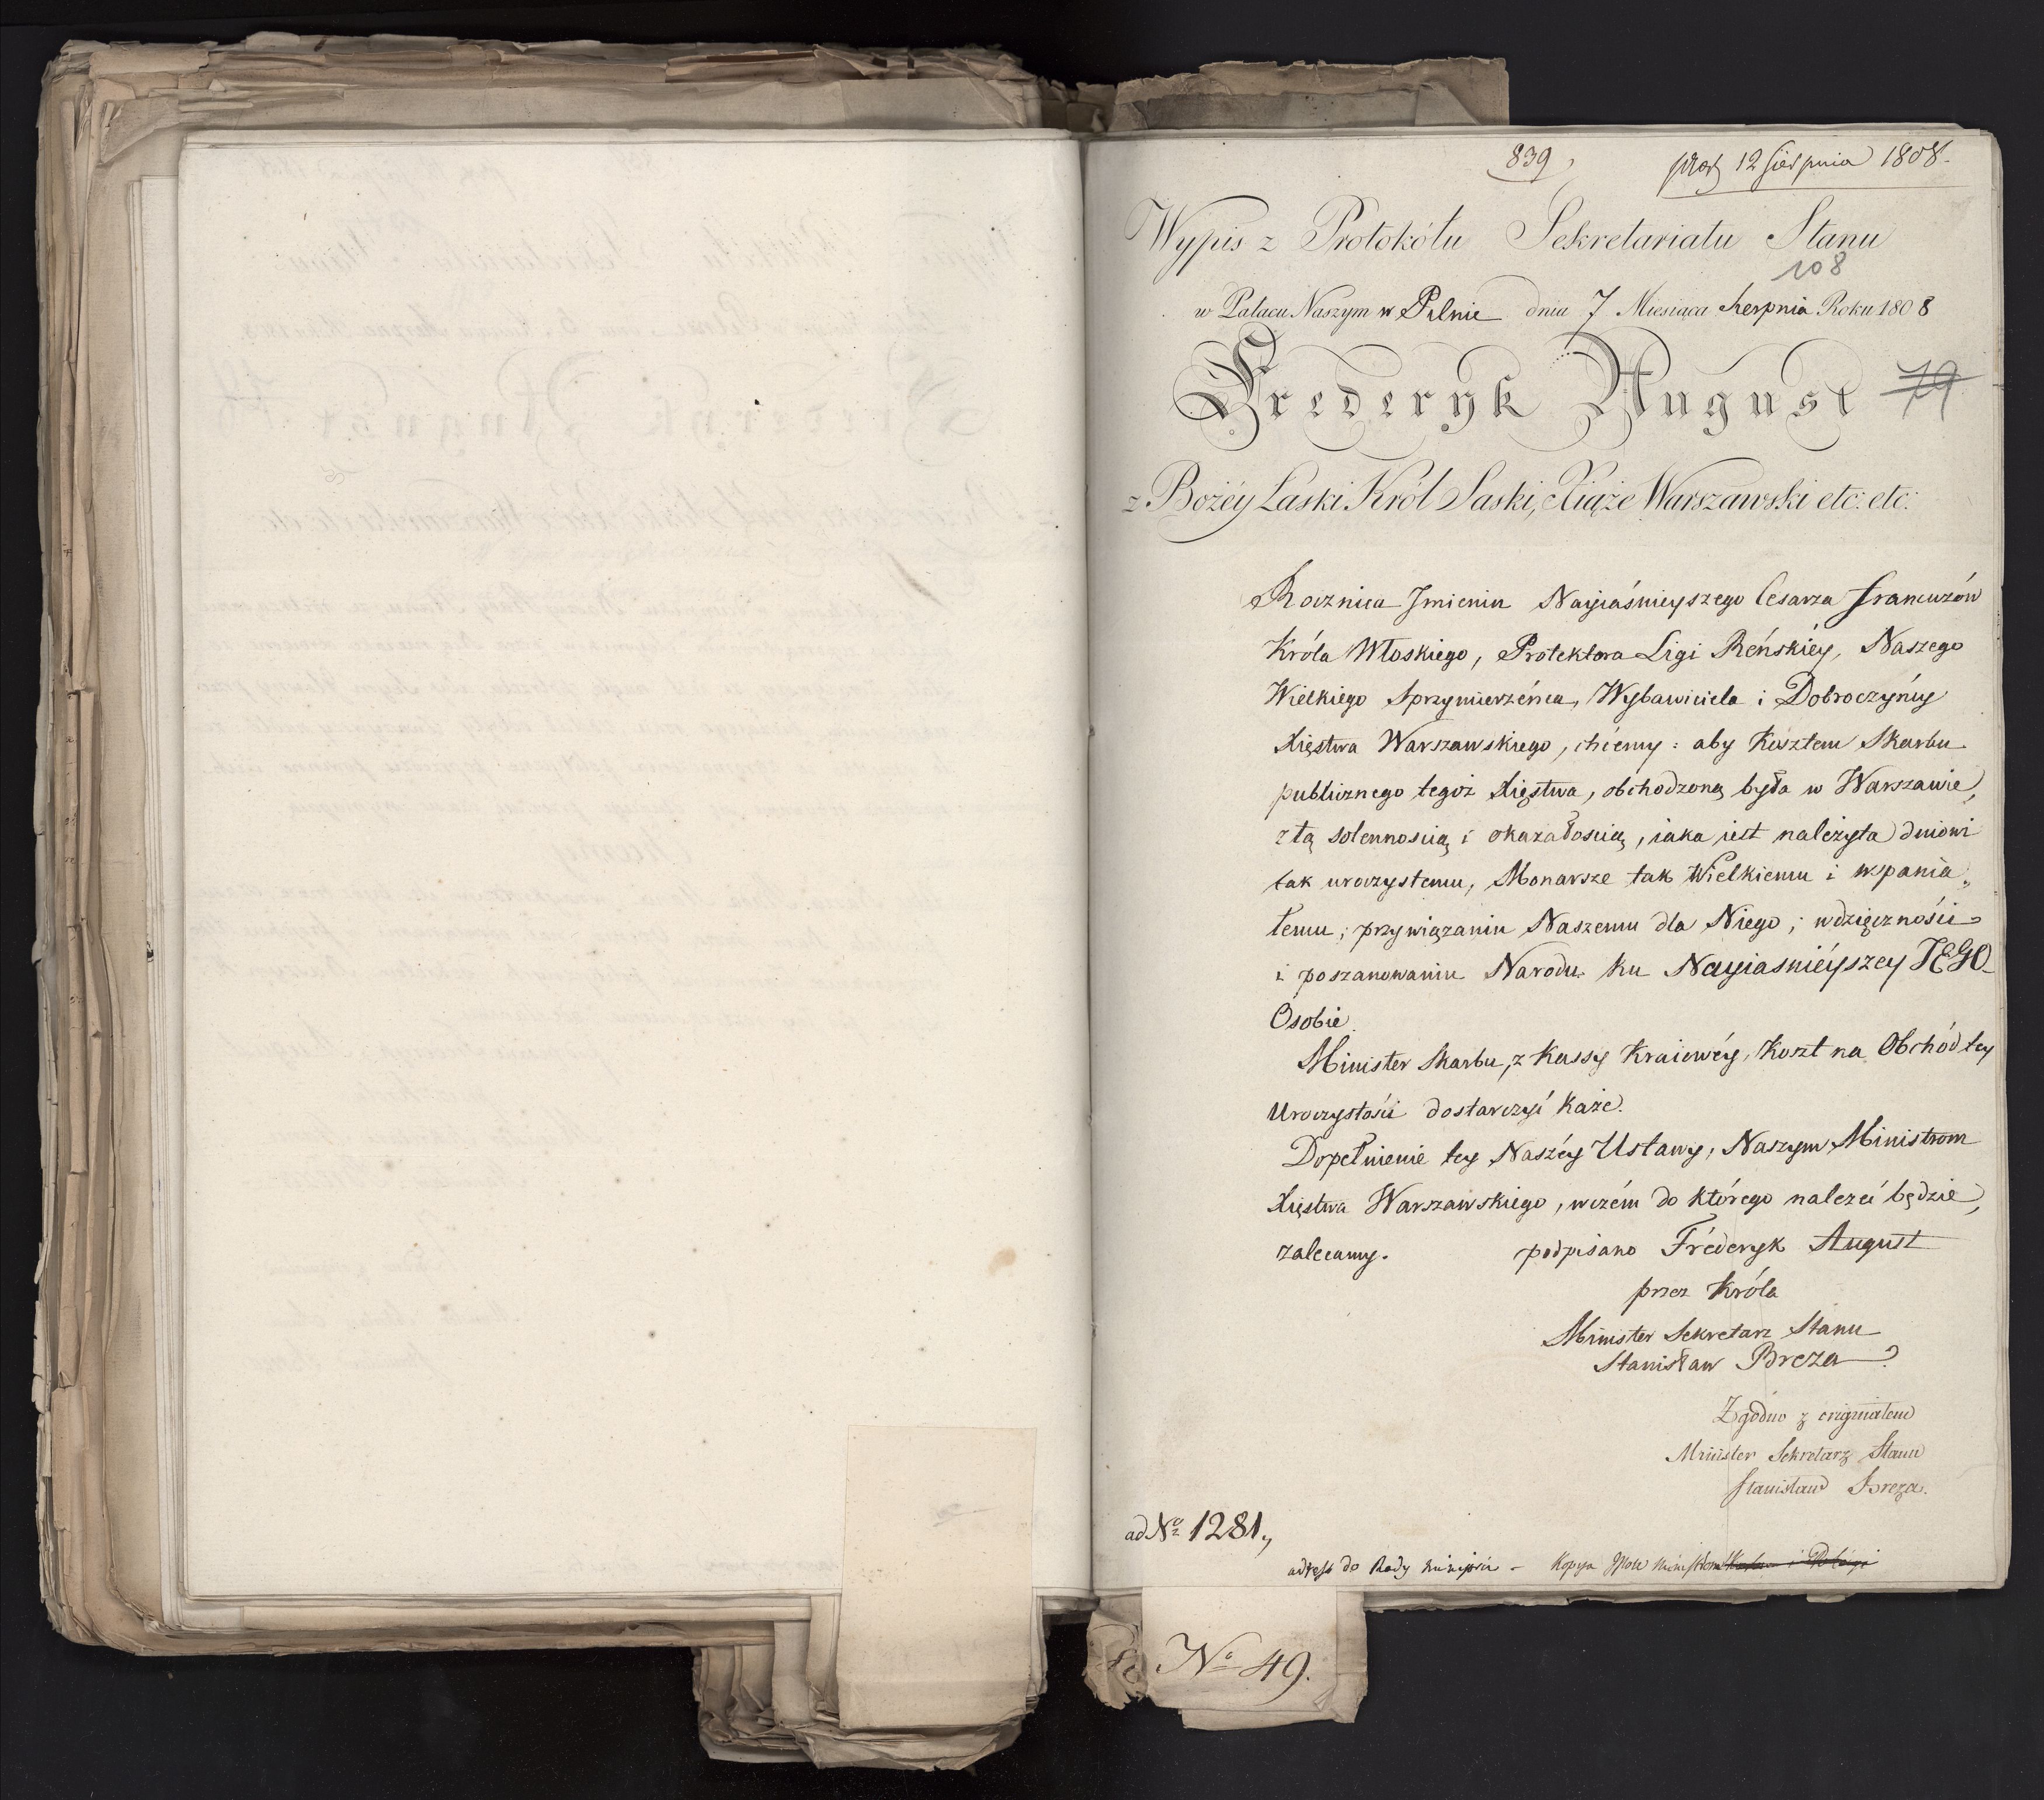 839
12 Sierpnia 1808.
Wypis z Protokółu Sekretariatu Stanu
108
w Pałacu Naszym w Pilnie dnia 7 Miesiąca Sierpnia Roku 1808
Frederyk August
79
z Bożéy Łaski Król Saski, Xiąże Warszawski etc: etc:
Rocznica Jmienin Nayiáśnieyszego Cesarza francuzów
Króla Włoskiego, Protektora Ligi Reńskiéy, Naszego
Wielkiego Sprzymierzéńca, Wybawiciela i Dobroczyńcy
Xięstwa Warszawskiego, chcemy: aby Kosztem Skarbu
publicznego tegoż Xięstwa, obchodzoną była w Warszawie,
z tą solennoscią i okazałoscią, iaka iest należyta dniowi
tak uroczystemu, Monarsze tak Wielkiemu i wspania„
łemu, przywiązaniu Naszemu dla Niego, wdzięczności
i poszanowaniu Narodu ku Nayiasnieyszey JEGO
Osobie.
Minister Skarbu, z Kassy Kraiowéy, koszt na Obchód tey
Uroczystości dostarczyć każe.
Dopełnienie tey Naszéy Ustawy, Naszym Ministrom
Xięstwa Warszawskiego, wczém do którego należeć będzie,
zalecamy. podpisano Fréderyk August
przez Króla
Minister Sekretarz Stanu
Stanisław Breza
Zgodno z originałem
Minister Sekretarz Stanu
Stanisław Breza.
ad No 1281,
adress do Rady
Kopya
No 49.